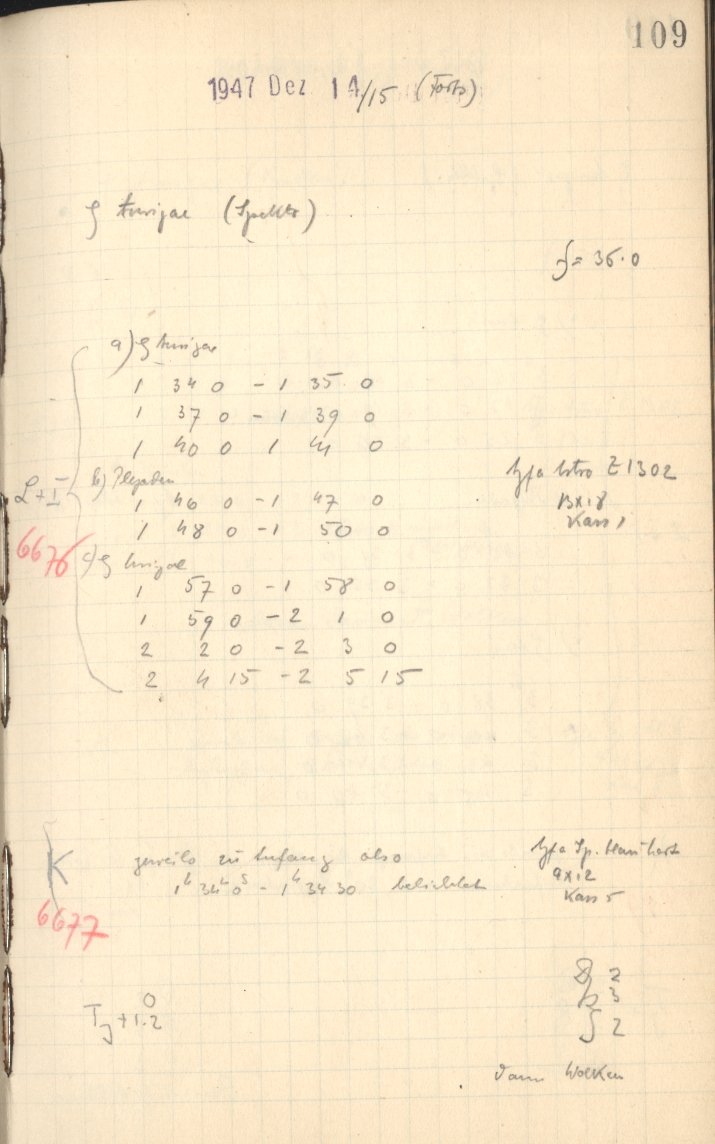 109
1947 Dez 14/15 (Forts)
ζ Aurigae (Spektr)
f = 36.0
a) ζ Aurigae
1 34 0 - 1 35 0
1 37 0 - 1 39 0
1 40 0 1 41 0
b) Plejaden
L+I
1 46 0 - 1 47 0
1 48 0 - 1 50 0
Agfa Astro Z1302
13x18
Kass 1
6676
c) ζ Aurigae
1 57 0 - 1 58 0
1 59 0 - 2 1 0
2 2 0 - 2 3 0
2 4 15 - 2 5 15
K
jeweils zu Anfang also
1h 34m 0s - 1h 34 30 belichtet
Agfa Sp. Blau hart
9x12
Kass 5
6677
TJ + 1.2
2
3
2
Dann Wolken